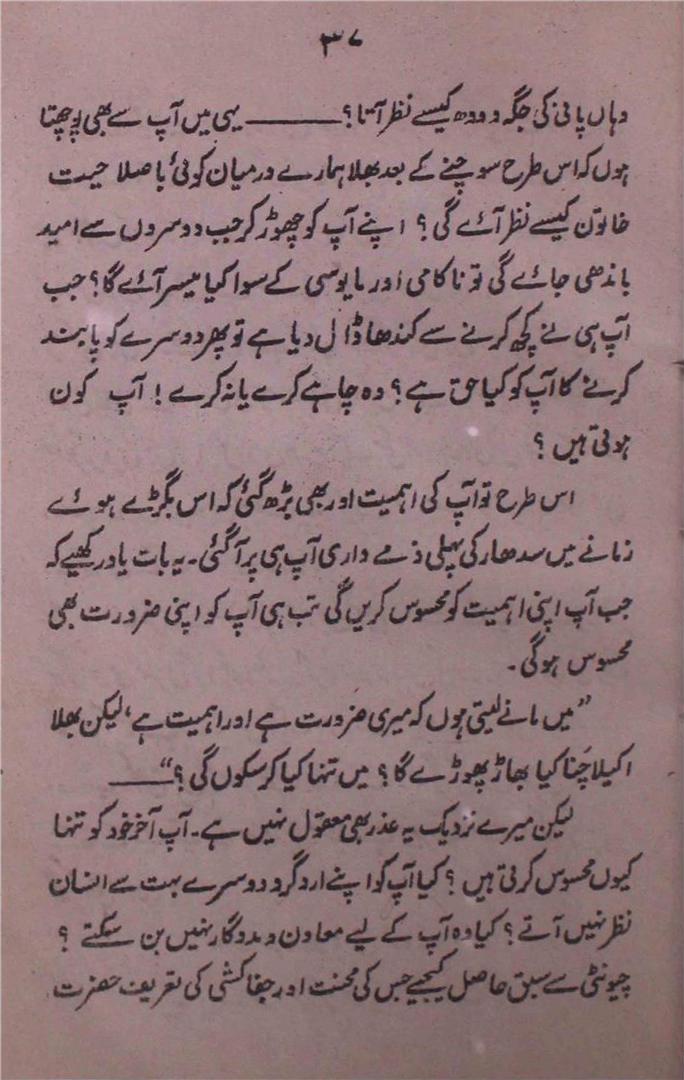 ۳۷
وہاں پانی کی جگہ دودھ کیسے نظر آتا؟ ــــــــ یہی میں آپ سے بھی پوچھتا
ہوں کہ اس طرح سوچنے کے بعد بھلا ہمارے درمیان کوئی باصلاحیت
خاتون کیسے نظر آئے گی؟ اپنے آپ کو چھوڑ کر جب دوسروں سے امید
باندھی جائے گی تو ناکامی اور مایوسی کے سوا کیا میسر آئے گا؟ جب
آپ ہی نے کچھ کرنے سے کندھا ڈال دیا ہے تو پھر دوسرے کو پابند
کرنے کا آپ کو کیا حق ہے؟ وہ چاہے کرے یا نہ کرے! آپ کون
ہوتی ہیں؟
اس طرح تو آپ کی اہمیت اور بھی بڑھ گئی کہ اس بگڑے ہوئے
زمانے میں سدھار کی پہلی ذمے داری آپ ہی پر آگئی۔ یہ بات یاد رکھیے کہ
جب آپ اپنی اہمیت کو محسوس کریں گی تب ہی آپ کو اپنی ضرورت بھی
محسوس ہوگی۔
”میں مانے لیتی ہوں کہ میری ضرورت ہے اور اہمیت ہے، لیکن بھلا
اکیلا چَنا کیا بھاڑ پھوڑے گا؟ میں تنہا کیا کر سکوں گی؟“ ــــــ
لیکن میرے نزدیک یہ عذر بھی معقول نہیں ہے۔ آپ آخر خود کو تنہا
کیوں محسوس کرتی ہیں؟ کیا آپ کو اپنے ارد گرد دوسرے بہت سے انسان
نظر نہیں آتے؟ کیا وہ آپ کے لیے معاون و مددگار نہیں بن سکتے؟
چیونٹی سے سبق حاصل کیجیے جس کی محنت اور جفاکشی کی تعریف حضرت